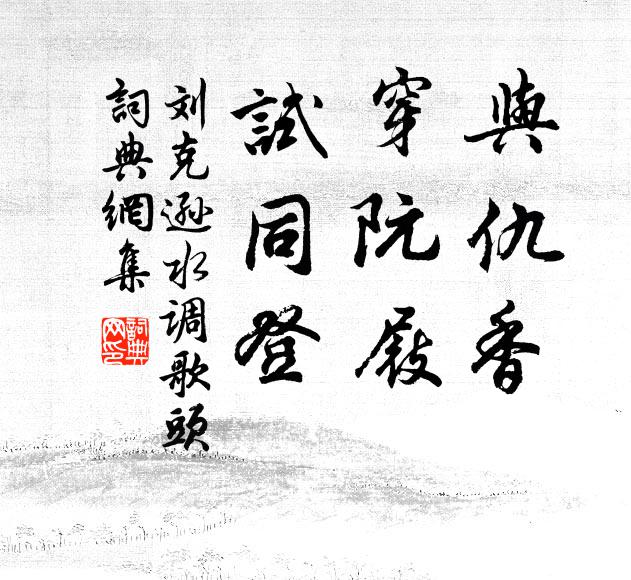 與仇香
穿阮屐
試同登
刘克遜水调歌頭
詞典網集
詞典
网印